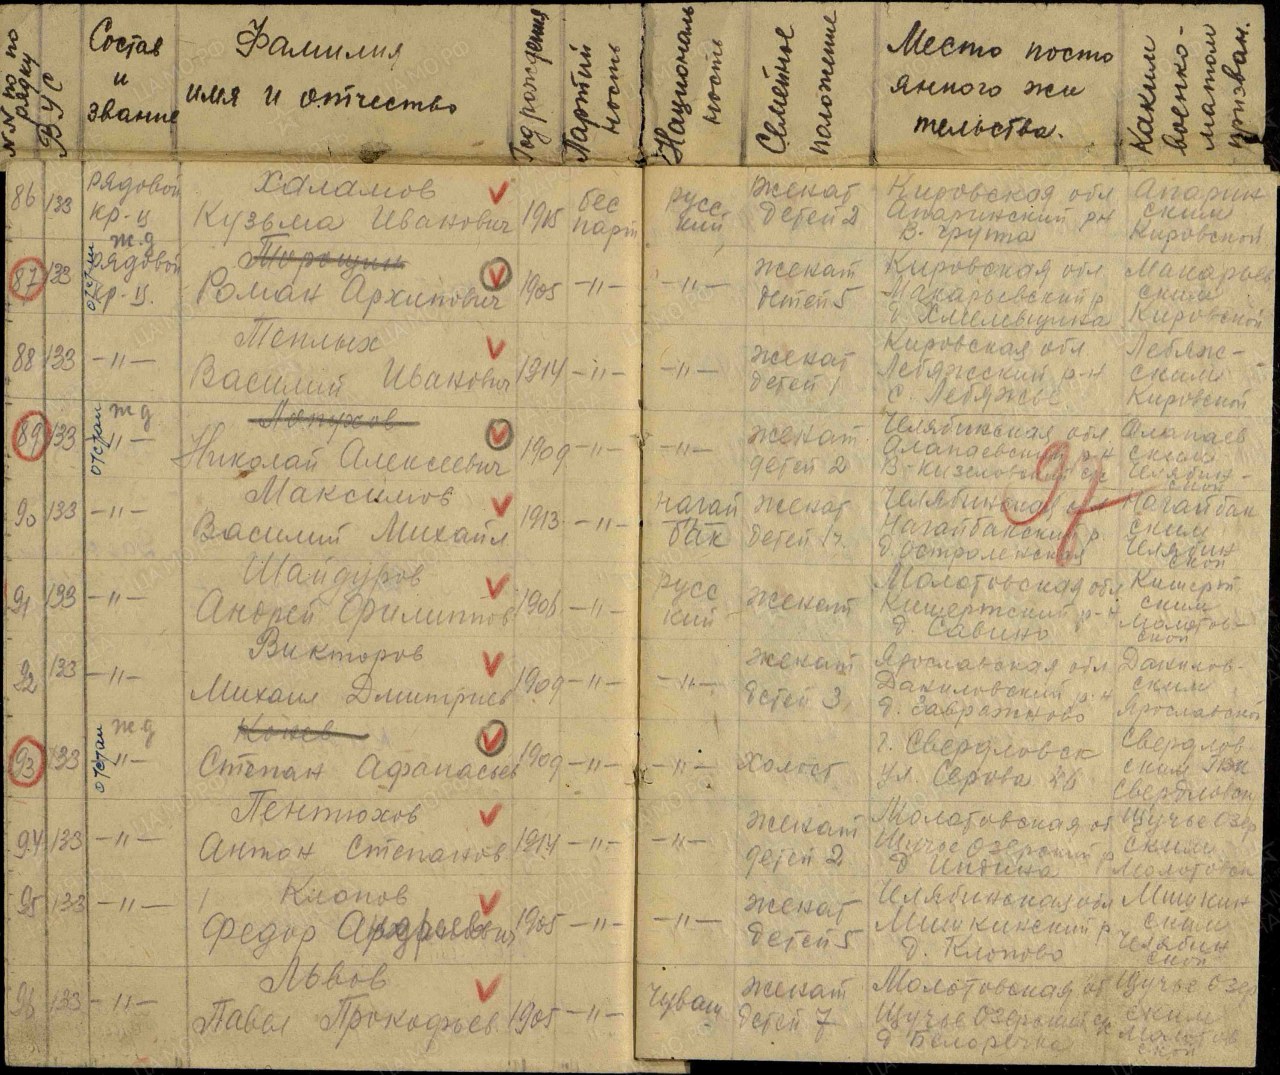 NN по порядку
ВУС
Состав и звание
Фамилия имя и отчество
Год рождения
Партийность
Национальность
Семейное положение
Место постоянного жительства.
Каким военкоматом призван.
86 133 рядовой кр-ц Халамов Кузьма Иванович 1915 бес парт русский женат детей 2 Кировская обл Опаринский р-н В. Группа Опаринским Кировской
87 133 отстал ж.д рядовой кр-ц. Роман Архипович 1905 -"- -"- женат детей 5 Кировская обл Макарьевский р Макарьевским Кировской
88 133 -"- Теплых Василий Иванович 1914 -"- -"- женат детей 1 Кировская обл Лебяжский р-н с. Лебяжье Лебяжским Кировской
89 133 отстал жд -"- Лопухов Николай Алексеевич 1909 -"- женат детей 2 Челябинская обл
90 133 -"- Максимов Василий Михайл 1913 -"- нагайбак женат детей 1 Челябинская обл Нагайбакский р. д. Остроленская Нагайбакским Челябинской
91 133 -"- Шайдуров Андрей Филиппов 1906 -"- русский женат Молотовская обл Кишертский р-н д. Савино Кишертским Молотовской
92 133 -"- Викторов Михаил Дмитриев 1909 -"- -"- женат детей 3 Ярославская обл Даниловский р-н д. Завражново Даниловским Ярославской
93 133 отстал жд -"- Конев Степан Афанасьев 1909 -"- -"- холост г. Свердловск ул. Серова Свердловским ГВК Свердловск
94 133 -"- Пентюхов Антон Степанов 1914 -"- -"- женат детей 2 Молотовская об Щучье Озерский р Щучье Озерским Молотовск
95 133 -"- Клопов Федор Андреевич 1905 -"- -"- женат детей 5 Челябинская обл Мишкинский р. д. Клопово Мишкинским Челябинской
96 133 -"- Львов Павел Прокофьев. 1905 -"- Чуваш женат детей 7 Молотовская об Щучье Озерский д Белоречка Щучье Озерским Молотовской